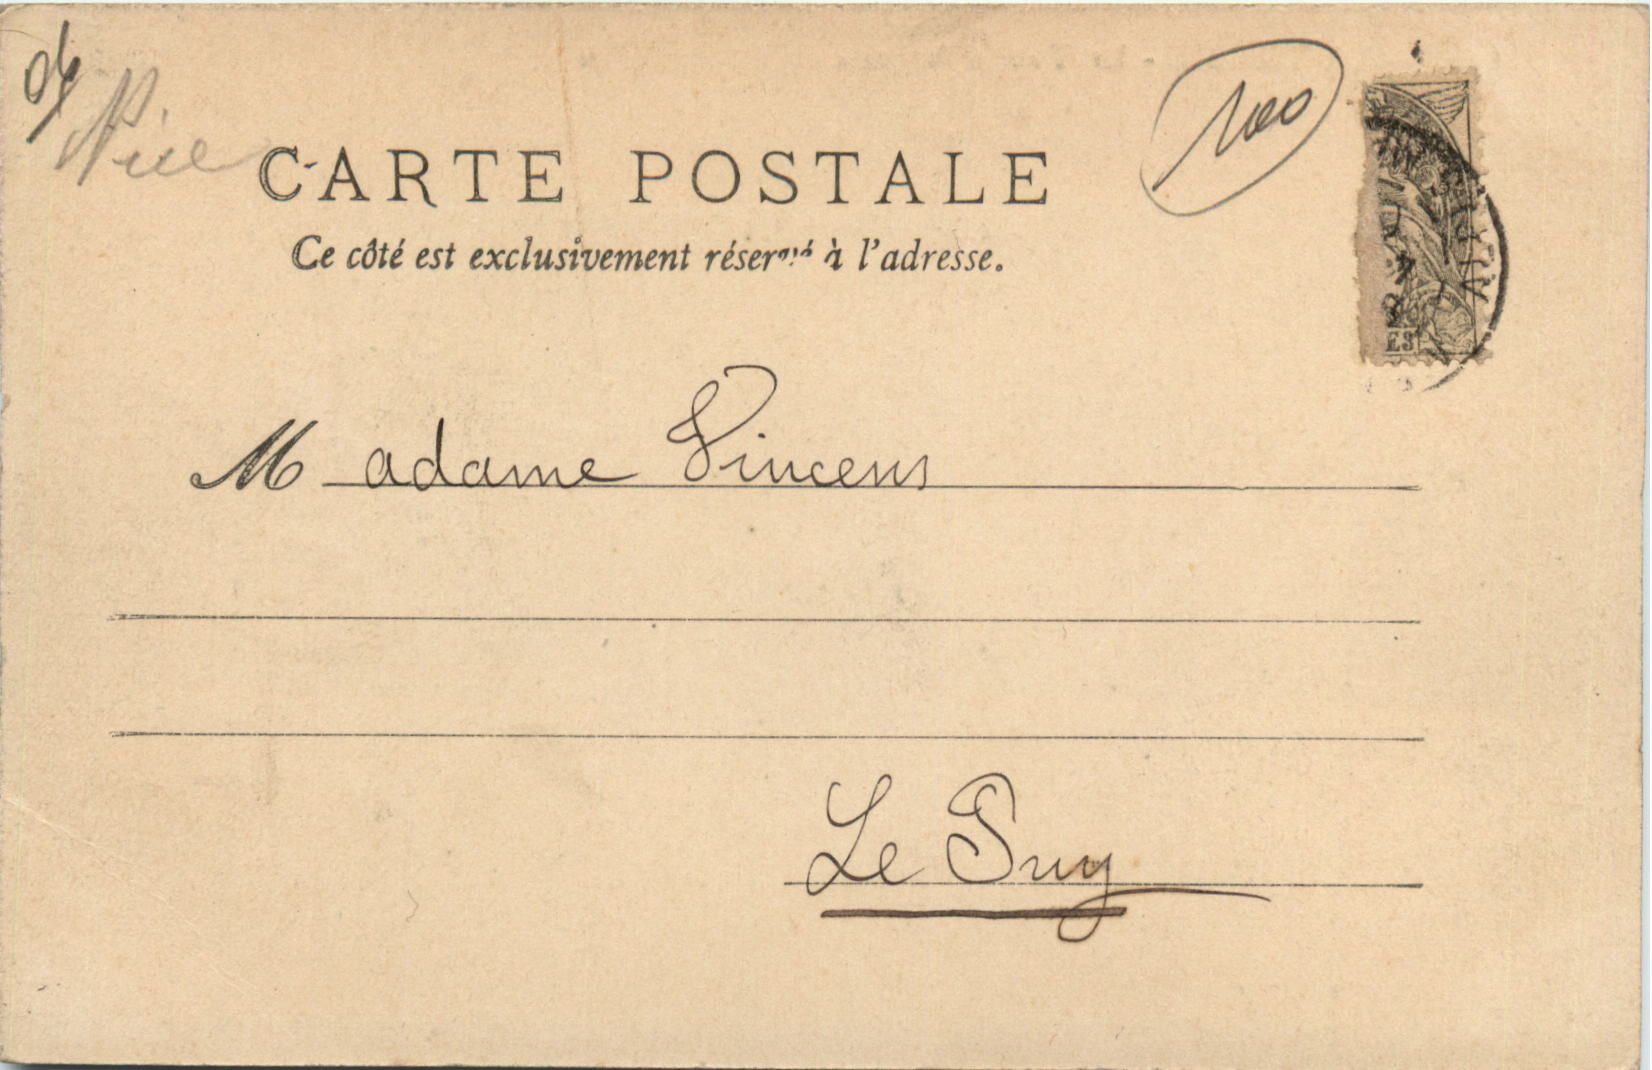 Nice
CARTE POSTALE
100
Ce côté est exclusivement réservé à l'adresse.
Madame Vincens
Le Puy